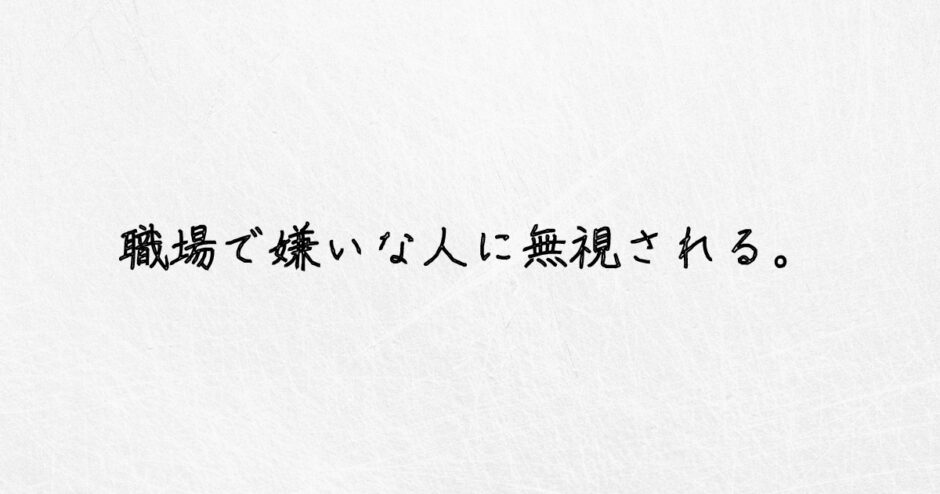 職場で嫌いな人に無視される。